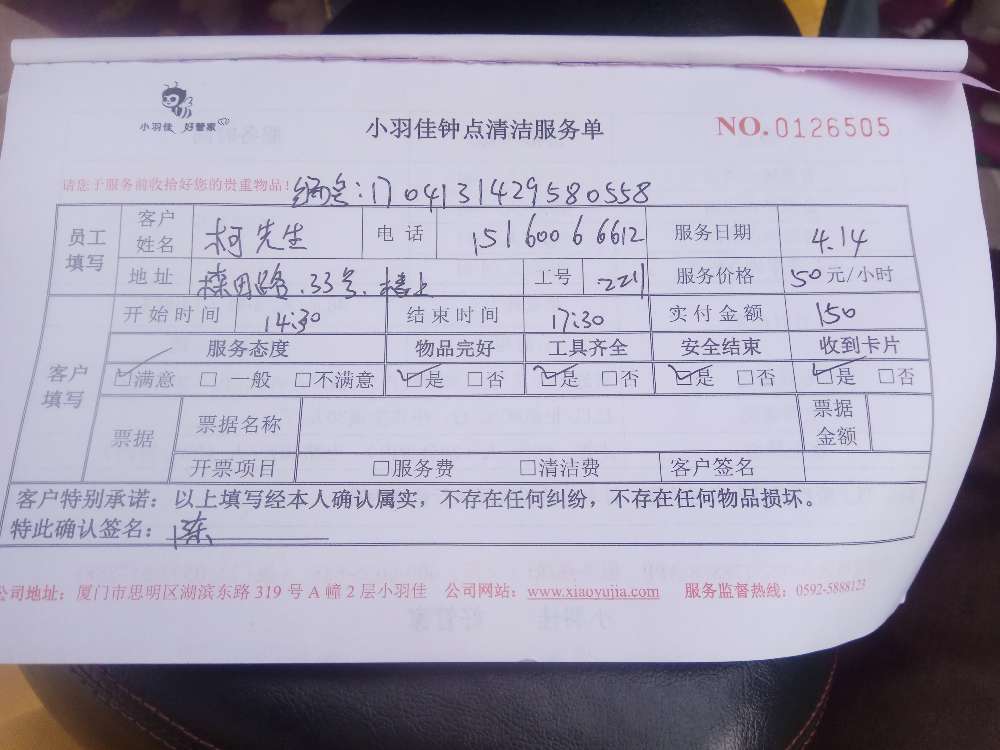 小羽佳 好管家
小羽佳钟点清洁服务单
NO.0126505
请您于服务前收拾好您的贵重物品！
编号：17041314295805 58
员工填写 客户姓名 柯先生 电话 15160066612 服务日期 4.14
地址 路.33号.楼上 工号 221 服务价格 50元/小时
客户填写 开始时间 14:30 结束时间 17:30 实付金额 150
服务态度 物品完好 工具齐全 安全结束 收到卡片
☑满意 □一般 □不满意 ☑是 □否 ☑是 □否 ☑是 □否 ☑是 □否
票据 票据名称 票据金额
开票项目 □服务费 □清洁费 客户签名
客户特别承诺：以上填写经本人确认属实，不存在任何纠纷，不存在任何物品损坏。
特此确认签名：陈
公司地址：厦门市思明区湖滨东路 319 号 A 幢 2 层小羽佳 公司网站：www.xiaoyujia.com 服务监督热线：0592-5888123